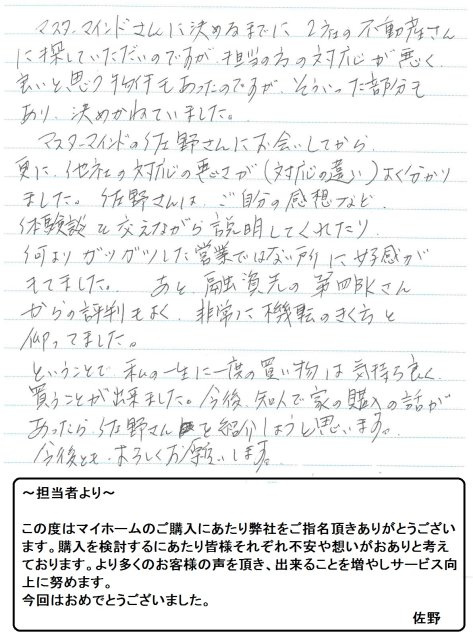 マスターマインドさんに決めるまでに 2社の不動産さん
に探していただいたのですが、担当の方の対応が悪く、
良いと思う物件もあったのですが、そういった部分も
あり、決めかねていました。
マスターマインドの佐野さんにお会いしてから、
更に、他社の対応の悪さが(対応の違い)よく分かり
ました。佐野さんは、ご自分の感想など、
体験談を交えながら説明してくれたり、
何よりガツガツした営業ではない所に好感が
もてました。 あと、融資先の第四BKさん
からの評判もよく、非常に機転のきく方と
仰ってました。
ということで、私の一生に一度の買い物は気持ち良く
買うことが出来ました。今後、知人で家の購入の話が
あったら、佐野さんを紹介しようと思います。
今後とも、よろしくお願いします。
～担当者より～
この度はマイホームのご購入にあたり弊社をご指名頂きありがとうござい
ます。購入を検討するにあたり皆様それぞれ不安や想いがおありと考え
ております。より多くのお客様の声を頂き、出来ることを増やしサービス向
上に努めます。
今回はおめでとうございました。
佐野